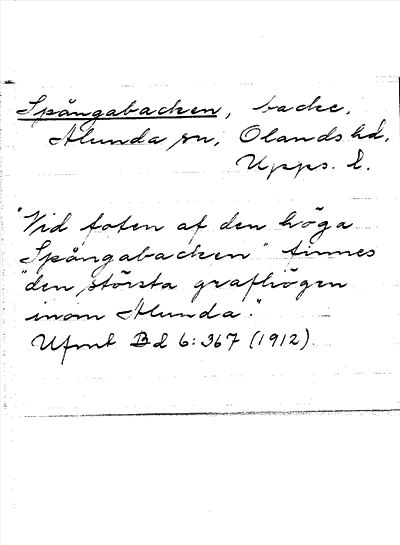 Spångabacken, backe,
Alunda sn, Olands hd,
Upps. l.
"Vid foten af den höga
Spångabacken" finnes
"den största grafhögen
inom Alunda."
Ufmt Bd 6:367 (1912).